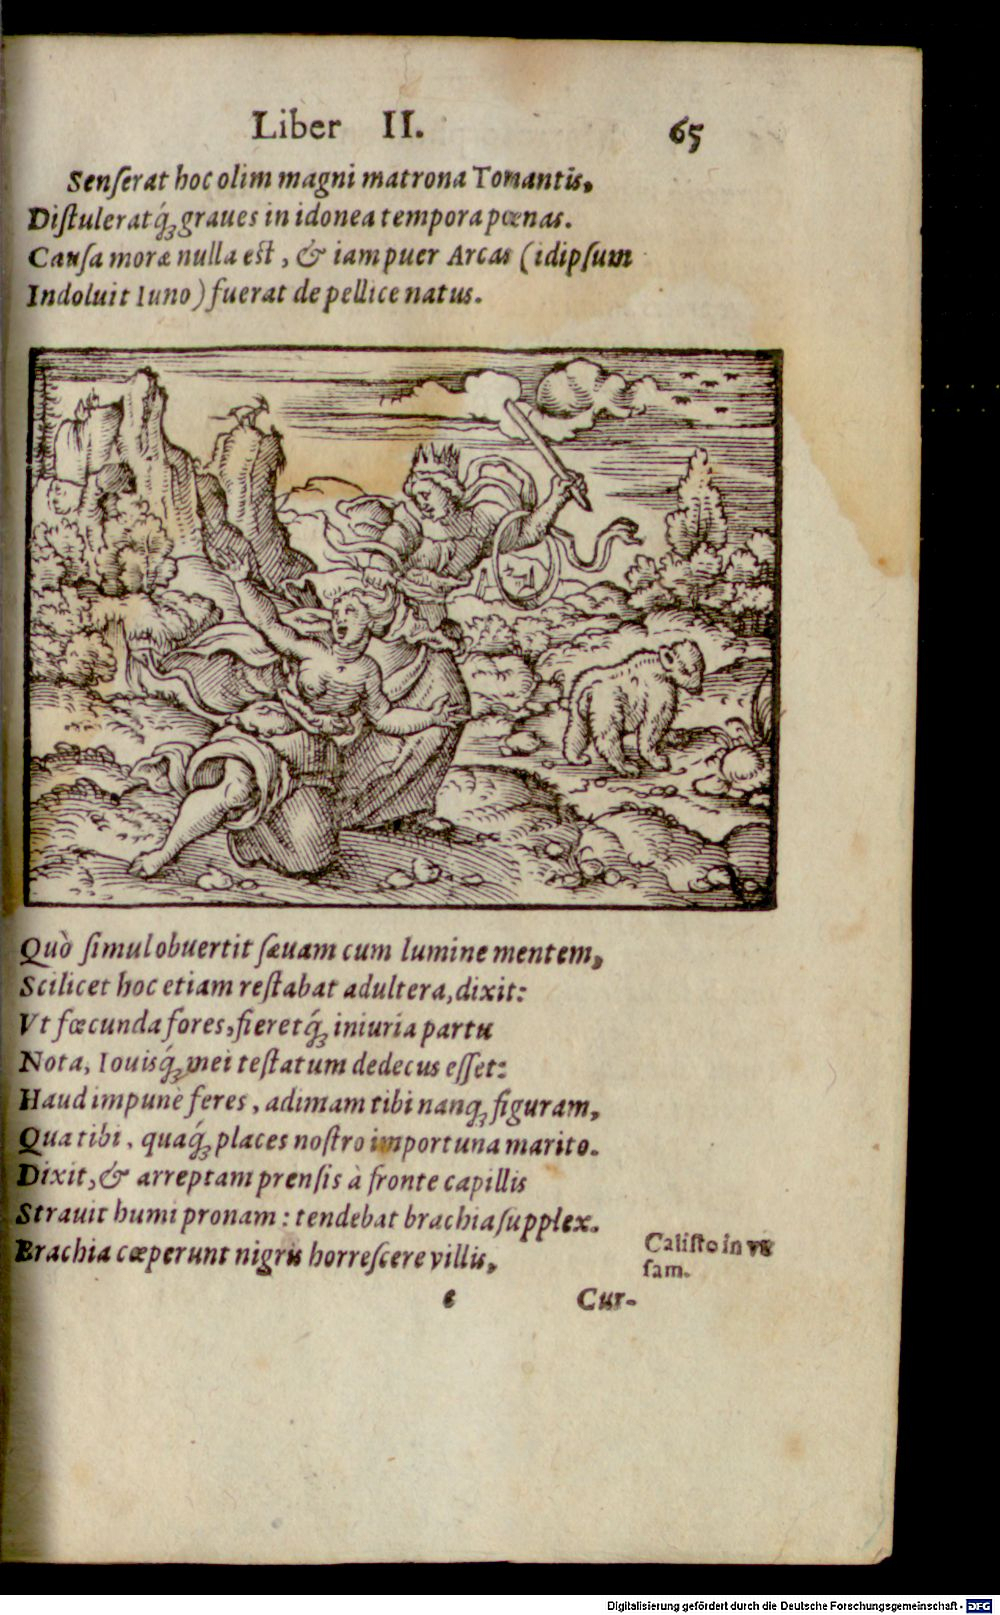 Liber II. 65
Senſerat hoc olim magni matrona Tonantis,
Diſtuleratq́ꝫ graues in idonea tempora pœnas.
Cauſa moræ nulla est, & iam puer Arcas (id ipſum
Indoluit Iuno) fuerat de pellice natus.
Quò ſimul obuertit ſæuam cum lumine mentem,
Scilicet hoc etiam reſtabat adultera, dixit:
Vt fœcunda fores, fieretq́ꝫ iniuria partu
Nota, Iouisq́ꝫ mei teſtatum dedecus eſſet:
Haud impunè feres, adimam tibi nanqꝫ figuram,
Qua tibi, quaq́ꝫ places noſtro importuna marito.
Dixit, & arreptam prenſis à fronte capillis
Strauit humi pronam: tendebat brachia ſupplex.
Brachia cœperunt nigris horreſcere villis,
Caliſto in vr
ſam.
e Cur-
Digitalisierung gefördert durch die Deutsche Forschungsgemeinschaft - DFG